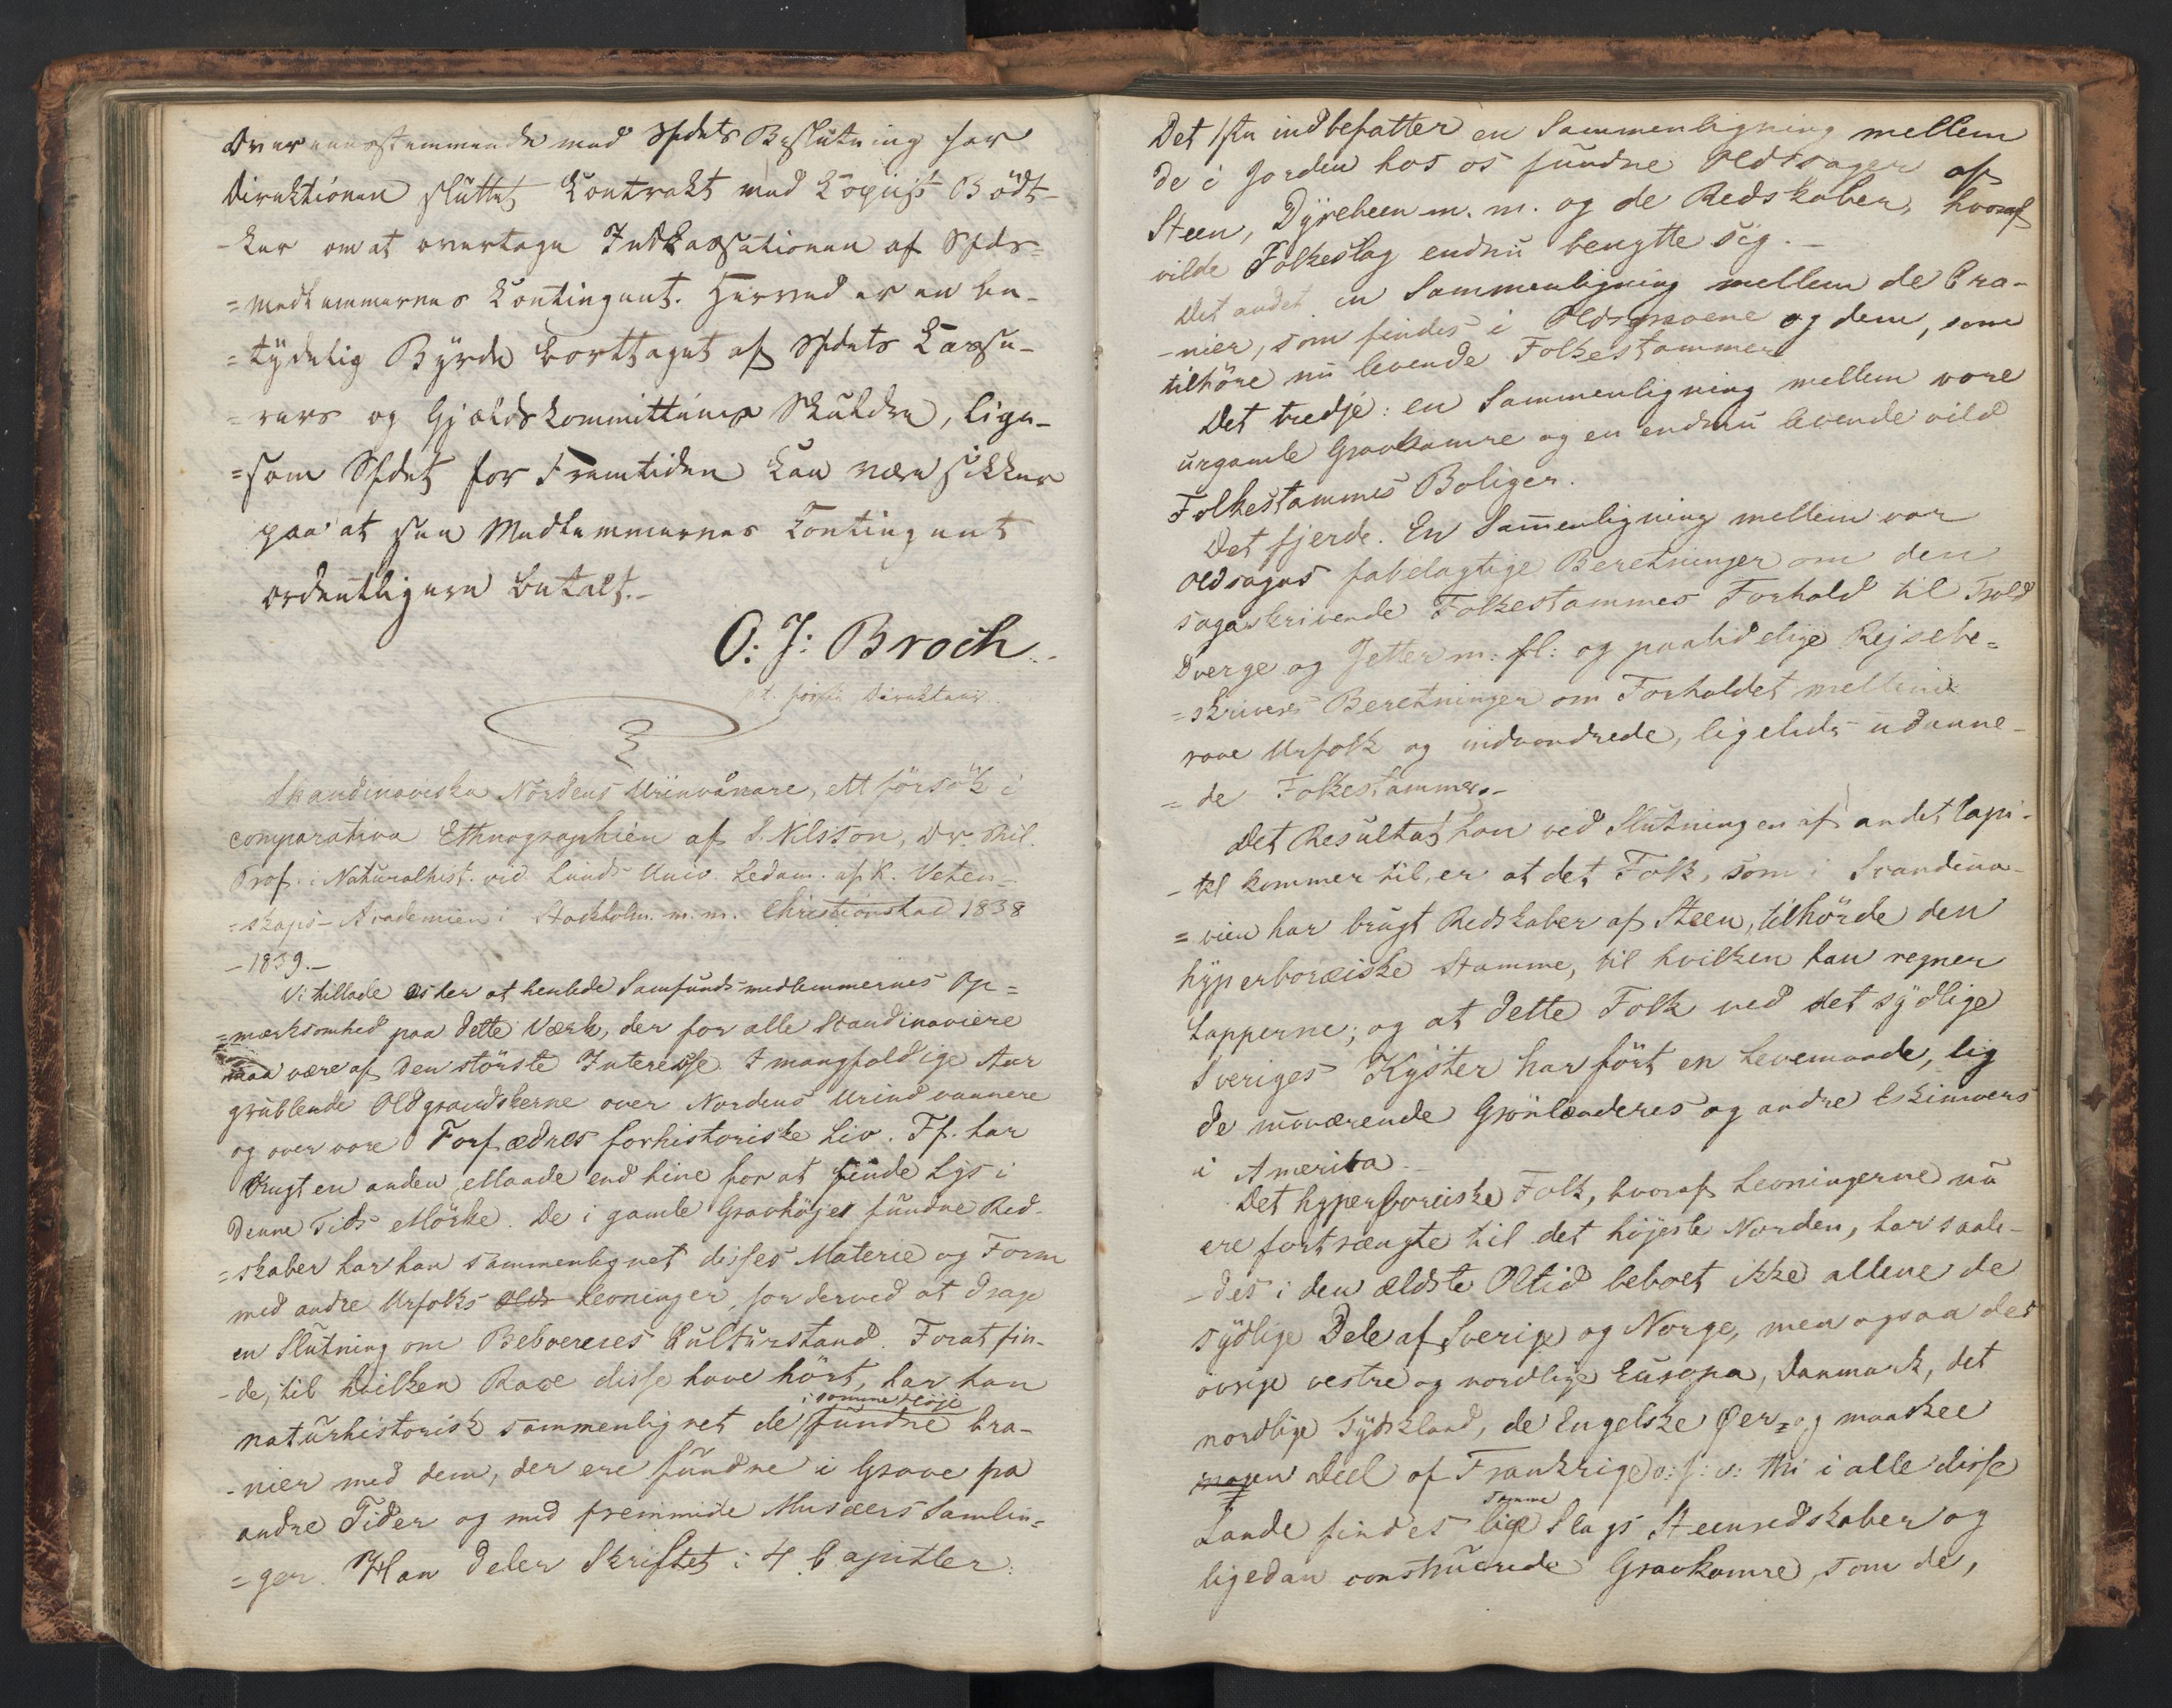 Overeensstemmende med Sfdets Beslutning har
Direktionen sluttet Kontrakt med Kopiist Bödt-
-ker om at overtage Indkassationen af Sfds-
=medlemmernes Kontingent. Herved er en be-
=tydelig Byrde borttaget af Sfdets Kasse-
=rers og Gjældskommitteens Skuldre, lige-
=som Sfdet for Fremtiden kan være sikker
paa at see Medlemmernes Contingent
ordentligere betalt.-
O: J: Broch.
p t. förste Direkteur.
Skandinaviska Nordens Urinvånare, ett försök i
comparativa Ethnographien af S. Nilsson, Dr. Phil.
Prof. i Naturalhist. vid Lunds Univ. Ledam. af K. Veten-
=skaps-Academien i Stockholm. m. m. Christianstad 1838
-1839.-
Vi tillade os her at henlede Samfundsmedlemmernes Op=
=mærksomhed paa dette Værk, der for alle Skandinaviere
maa være af den störste Interesse. I mangfoldige Aar
grublende Oldgrandskerne over Nordens Urindvaanere
og over vore Forfædres forhistoriske Liv. Ff. har
brugt en anden Maade end hine for at finde Lys i
denne Tids Mörke. De i gamle Gravhöjer fundne Red-
=skaber har han sammenlignet disses Materie og Form
med andre Urfolks Olds Levninger, for derved at drage
en Slutning om Beboernes Kulturstand. For at fin-
-de, til hvilken Race disse have hört, har han
i samme Höje
naturhistorisk sammenlignet de fundne Cra-
-nier med dem, der ere fundne i Grave fra
andre Tider og med fremmede Musæers Samlin=
=ger. Han deler Skriftet i 4 Capitler:
Det 1ste indbefatter en Sammenligning mellem
de i Jorden hos os fundne Oldtsager af
Steen, Dyrebeen m. m. og de Redskaber, hvoraf
vilde Folkeslag endnu benytte sig.-
Det andet en Sammenligning mellem de Cra-
-nier, som findes i Oldgravene og dem, som
tilhöre nu levende Folkestammer
Det tredje: en Sammenligning mellem vore
urgamle Gravkamre og en endnu levende vild
Folkestammes Boliger.
Det fjerde. En Sammenligning mellem vor
Oldsagas fabelagtige Beretninger om den
sagaskrivende Folkestammes Forhold til Trold
Dverge og Jetter m: fl: og paalidelige Rejsebe=
=skriveres Beretninger om Forholdet mellem
raae Urfolk og indvandrede, ligeledes udanne-
=de Folkestammer.-
Det Resultat han ved Slutningen af andet Capi-
-tel kommer til, er at det Folk, som i Scandina-
=vien har brugt Redskaber af Steen, tilhörde den
hyperboræiske Stamme, til hvilken han regner
Lapperne; og at dette Folk ved det sydlige
Sveriges Kyster har fört en Levemaade, lig
de nuværende Grönlænderes og andre Eskimoers
i Amerika.
Det hyperboreiske Folk, hvoraf Levningerne nu
ere fortrængte til det höjeste Norden, har saale-
-des i den ældste Oltid beboet ikke allene de
sydlige Dele af Sverige og Norge, men ogsaa det
övrige vestre og nordlige Europa, Danmark, det
nordlige Tydskland, de Engelske Øer og maaskee
en Deel af Frankrige o: s: v: thi i alle disse
samme
Lande findes lige Slags Steenredskaber og
ligedan construerede Gravkamre, som de,